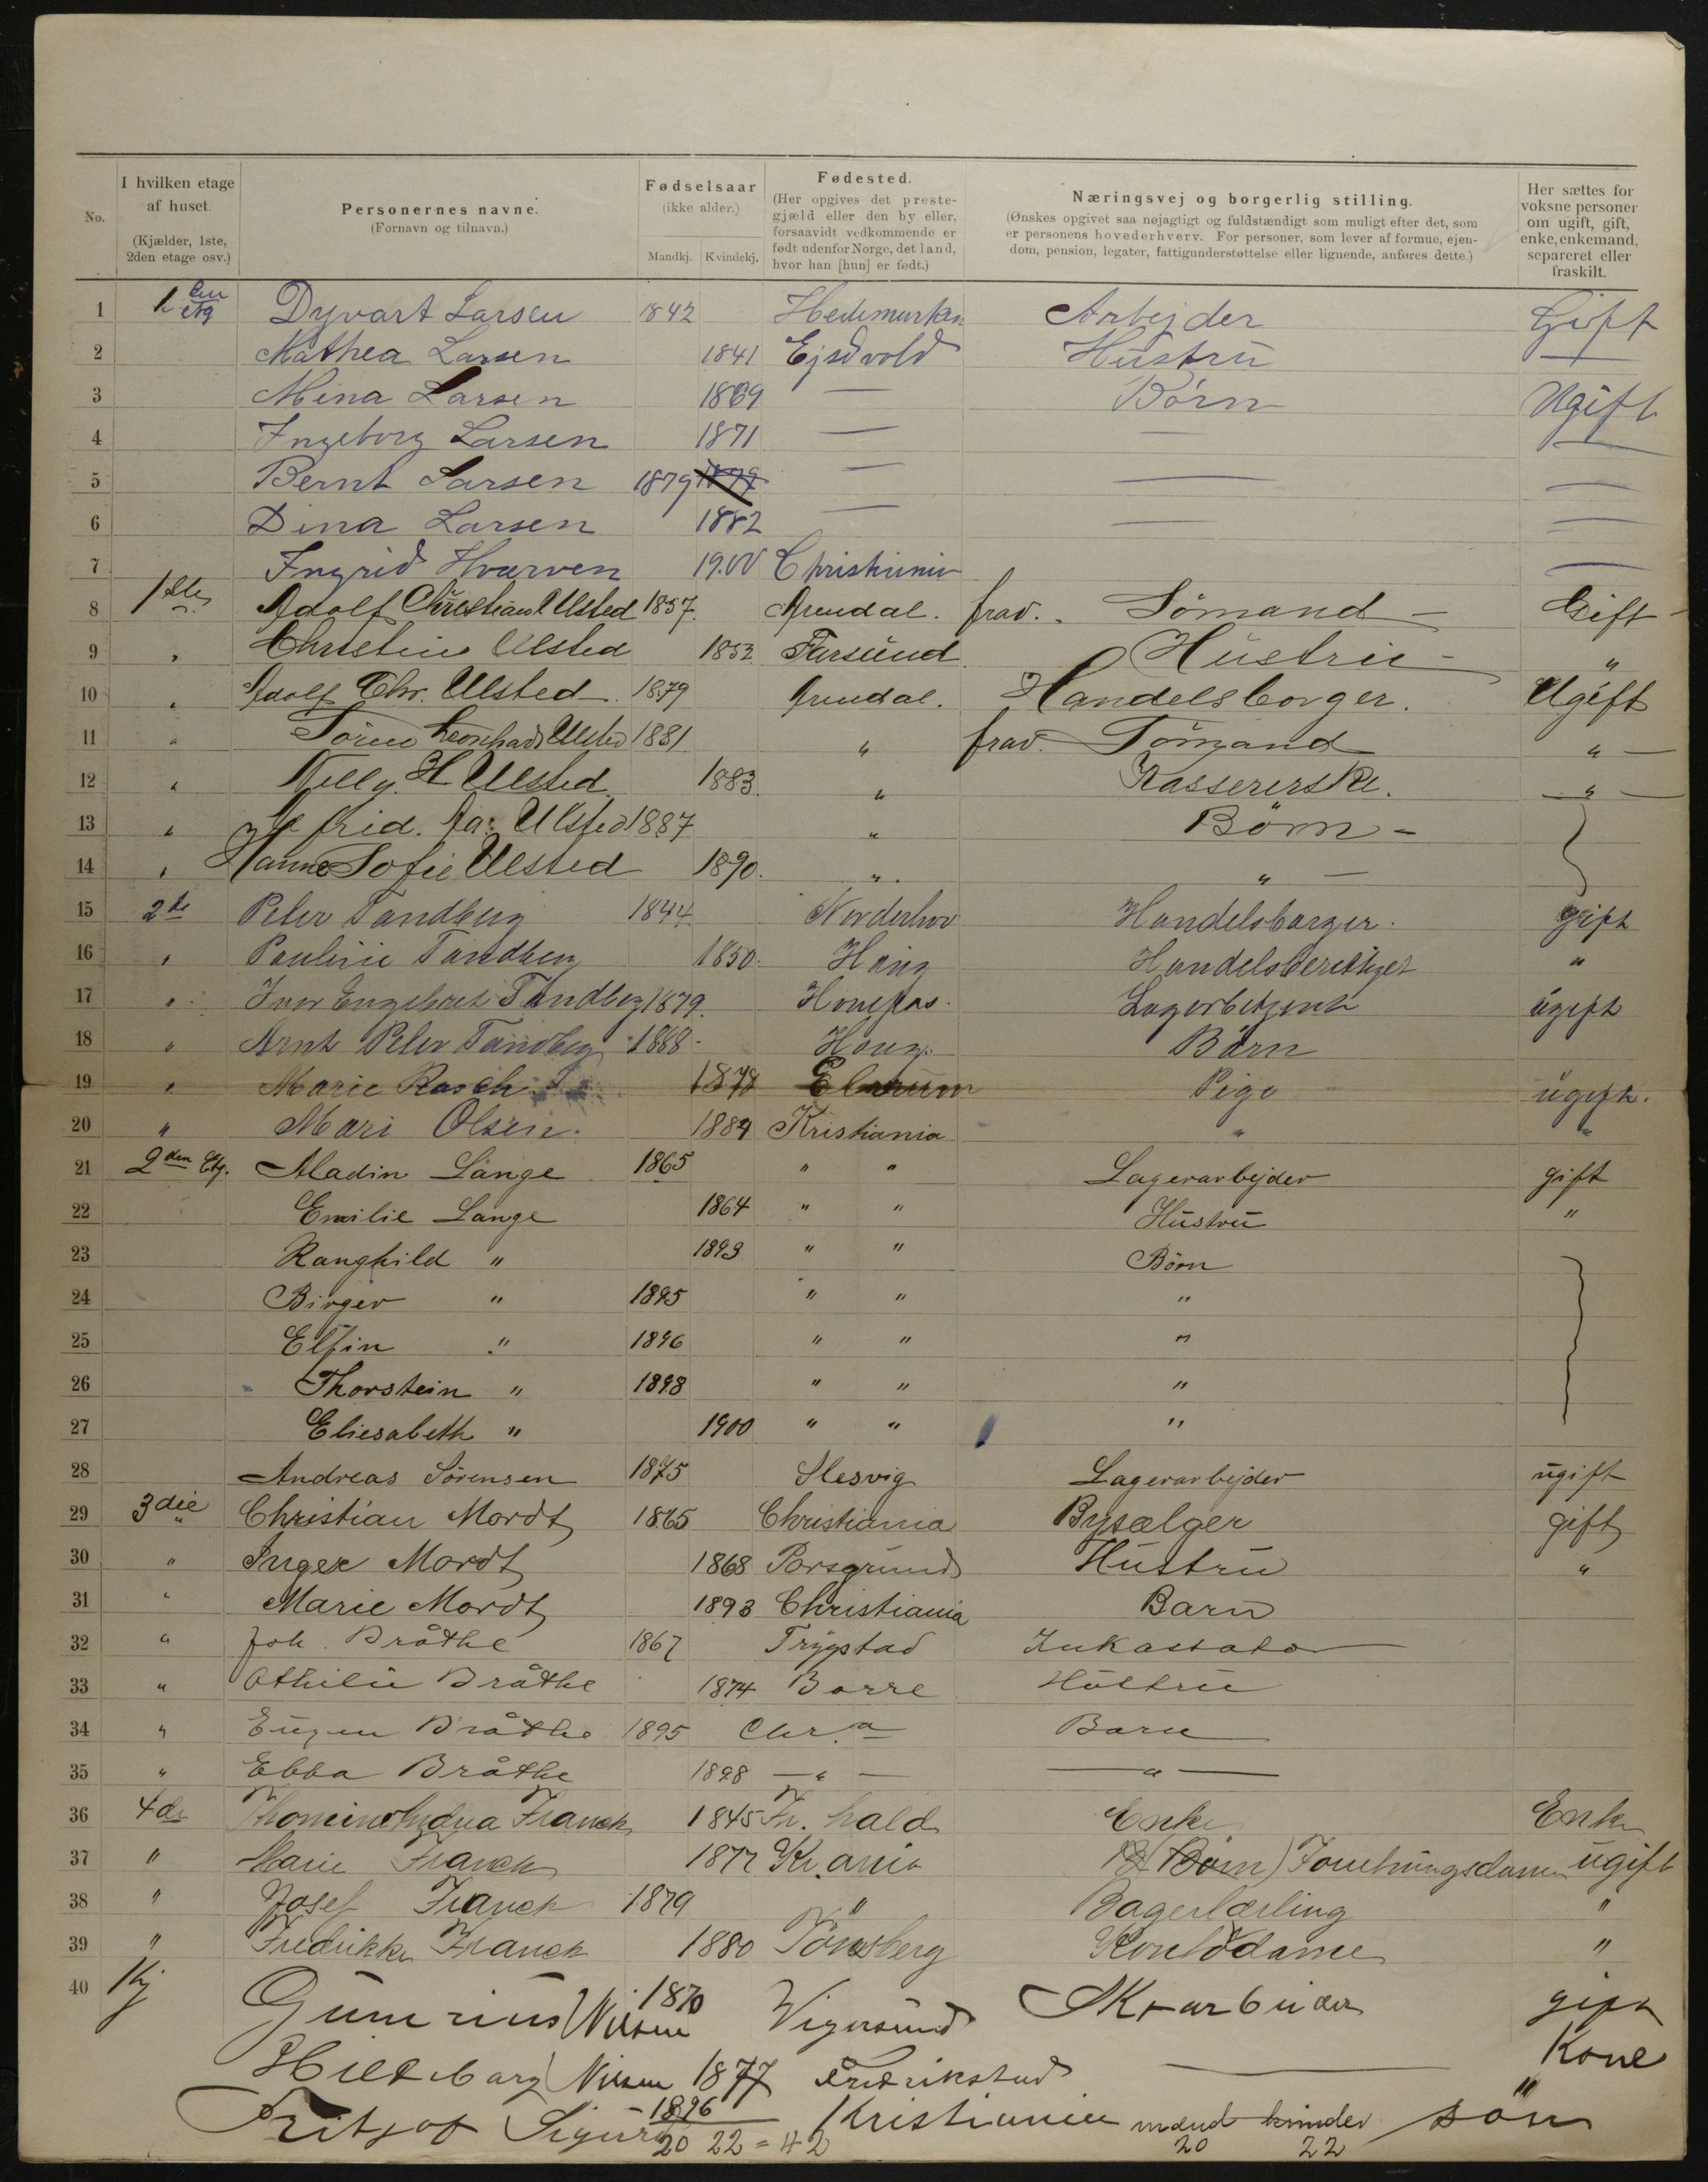 No. | I hvilken etage af huset. (Kjælder, 1ste, 2den etage osv.) | Personernes navne. (Fornavn og tilnavn.) | Fødselsaar (ikke alder.) Mandkj. Kvindekj. | Fødested. (Her opgives det prestegjæld eller den by eller, forsaavidt vedkommende er født udenfor Norge, det land, hvor han [hun] er født.) | Næringsvej og borgerlig stilling. (Ønskes opgivet saa nøjagtigt og fuldstændigt som muligt efter det, som er personens hovederhverv. For personer, som lever af formue, ejendom, pension, legater, fattigunderstøttelse eller lignende, anføres dette.) | Her sættes for voksne personer om ugift, gift, enke, enkemand, separeret eller fraskilt.
1 1 etg Dyvart Larsen 1842 Hedemarken Arbejder Gift
2 Mathea Larsen 1841 Ejsdvold Hustru —
3 Mina Larsen 1869 — Børn Ugift
4 Ingeborg Larsen 1871 — — —
5 Bernt Larsen 1879 1879 — — —
6 Dina Larsen 1882 — — —
7 Ingrid Hvarven 1900 Christiania —
8 1ste Adolf Christian Ulsted 1857. Arendal. frav. Sömand — Gift -
9 " Christine Ulsted 1853 Farsund Hustru - "
10 " Adolf Chr. Ulsted 1879 Arendal. Handelsborger. Ugift
11 " Leonhard Ulsted 1881 " frav. Sömand " —
12 " Nelly. H Ulsted 1883. " Kassererske. — " —
13 " Aa: Ulsted 1887 " Børn -
14 " Hanna Sofie Ulsted 1890. " . " —
15 2de Peter Tandberg 1844. Norderhov Handelsborger. gift
16 " Pauline Tandberg 1850. Houg Handelsberettiget "
17 " Iver Engebret Tandberg 1879. Hønefos. Lagerbetjent ugift
18 " Arnt Peter Tandberg 1888. Houg. Børn
19 " Marie Rasch 1878 Elverum Pige ugift.
20 " Mari Olsen. 1884 Kristiania " "
21 2den Etg. Aladin Lange 1865 " " Lagerarbejder gift
22 Emilie Lange 1864 " " Hustru "
23 Ranghild " 1893 " " Børn
24 Birger " 1895 " " "
25 Elfin " 1896 " " "
26 Thorstein " 1898 " " "
27 Eliesabeth " 1900 " " "
28 Andreas Sørensen 1875 Slesvig Lagerarbejder ugift
29 3die " Christian Mordt 1865 Christiania Bysælger gift
30 " Inger Mordt 1868 Porsgrund Hustru "
31 " Marie Mordt 1893 Christiania Barn
32 " Joh. Bråthe 1867 Trygstad Inkassator
33 " Othilie Bråthe 1874 Borre Hustru
34 " Eugen Bråthe 1895 Chr.a Barn
35 " Ebba Bråthe 1898 — " — — " —
36 4de Thomine Andrea Franck 1845 Fr. hald Enke Enke
37 " Marie Franck 1877 Kr.ania (Børn) Forretningsdame ugift
38 " Josef Franck 1879 " Bagerlærling "
39 " Fredrikke Franck 1880 Tönsberg Kontordame "
40 Kj Gunerius Nilsen 1870 Vigersund Skoarbeider gift
Hildeborg Nilsen 1877 Fredrikstad — Kone
Fritjof Sigurd 1896 Kristiania mænd kvinder " søn
20 22 = 42 20 22